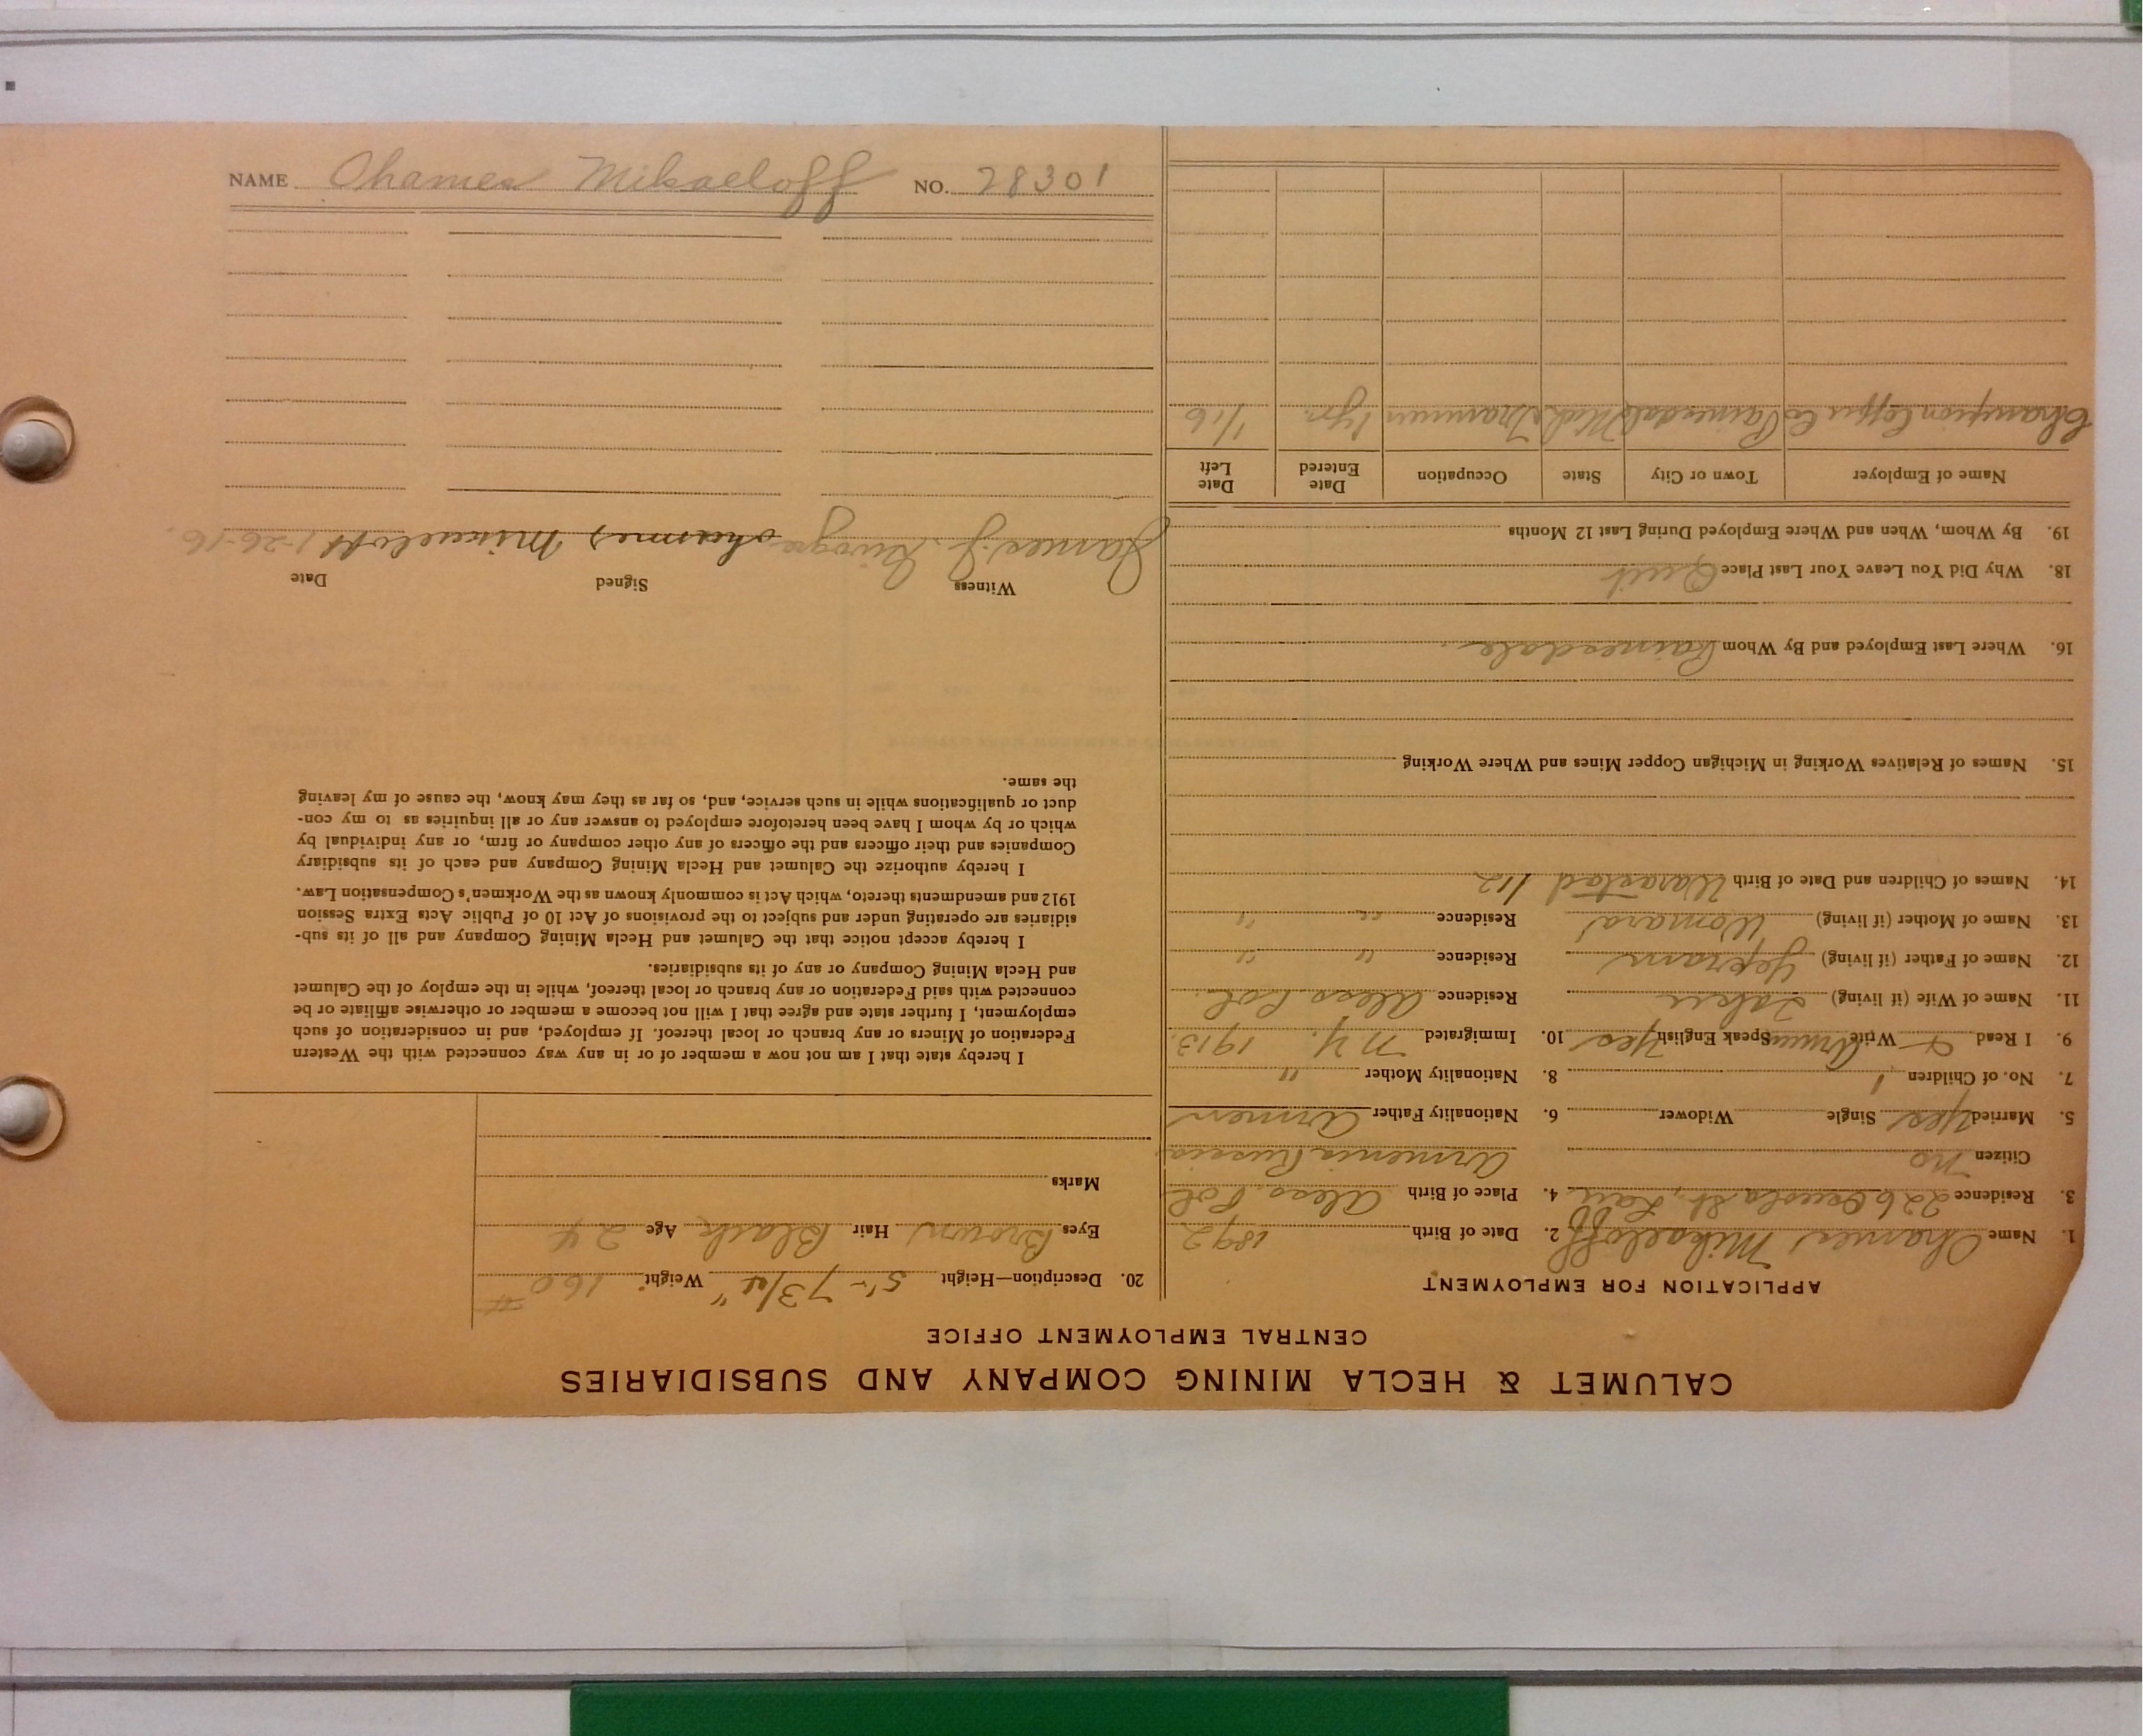 CALUMET & HECLA MINING COMPANY AND SUBSIDIARIES
CENTRAL EMPLOYMENT OFFICE
APPLICATION FOR EMPLOYMENT
1. Name Ohames Mikaeloff 2. Date of Birth 1892
3. Residence 226 Osceola St., Laur 4. Place of Birth Alexs. Pol
Citizen no Armenia Russia
5. Married Yes Single Widower 6. Nationality Father Armen
7. No. of Children 1 8. Nationality Mother "
9. I Read & Write Armen Speak English Yes 10. Immigrated N.Y. 1913.
11. Name of Wife (if living) Residence Alexs Pol.
12. Name of Father (if living) Yeprem Residence " "
13. Name of Mother (if living) Residence " "
14. Names of Children and Date of Birth 1/12
15. Names of Relatives Working in Michigan Copper Mines and Where Working
16. Where Last Employed and By Whom Painesdale.
18. Why Did You Leave Your Last Place Quit
19. By Whom, When and Where Employed During Last 12 Months
Name of Employer Town or City State Occupation Date Entered Date Left
Champion Copper Co Painesdale Mich Trammer 1 yr. 1/16
20. Description—Height 5'- 7 3/4" Weight 160 #
Eyes Brown Hair Black Age 24
Marks
I hereby state that I am not now a member of or in any way connected with the Western
Federation of Miners or any branch or local thereof. If employed, and in consideration of such
employment, I further state and agree that I will not become a member or otherwise affiliate or be
connected with said Federation or any branch or local thereof, while in the employ of the Calumet
and Hecla Mining Company or any of its subsidiaries.
I hereby accept notice that the Calumet and Hecla Mining Company and all of its sub-
sidiaries are operating under and subject to the provisions of Act 10 of Public Acts Extra Session
1912 and amendments thereto, which Act is commonly known as the Workmen's Compensation Law.
I hereby authorize the Calumet and Hecla Mining Company and each of its subsidiary
Companies and their officers and the officers of any other company or firm, or any individual by
which or by whom I have been heretofore employed to answer any or all inquiries as to my con-
duct or qualifications while in such service, and, so far as they may know, the cause of my leaving
the same.
Witness Signed Date
James J. ohames Mikaeloff 1-26-16.
NAME Ohames Mikaeloff NO. 28301